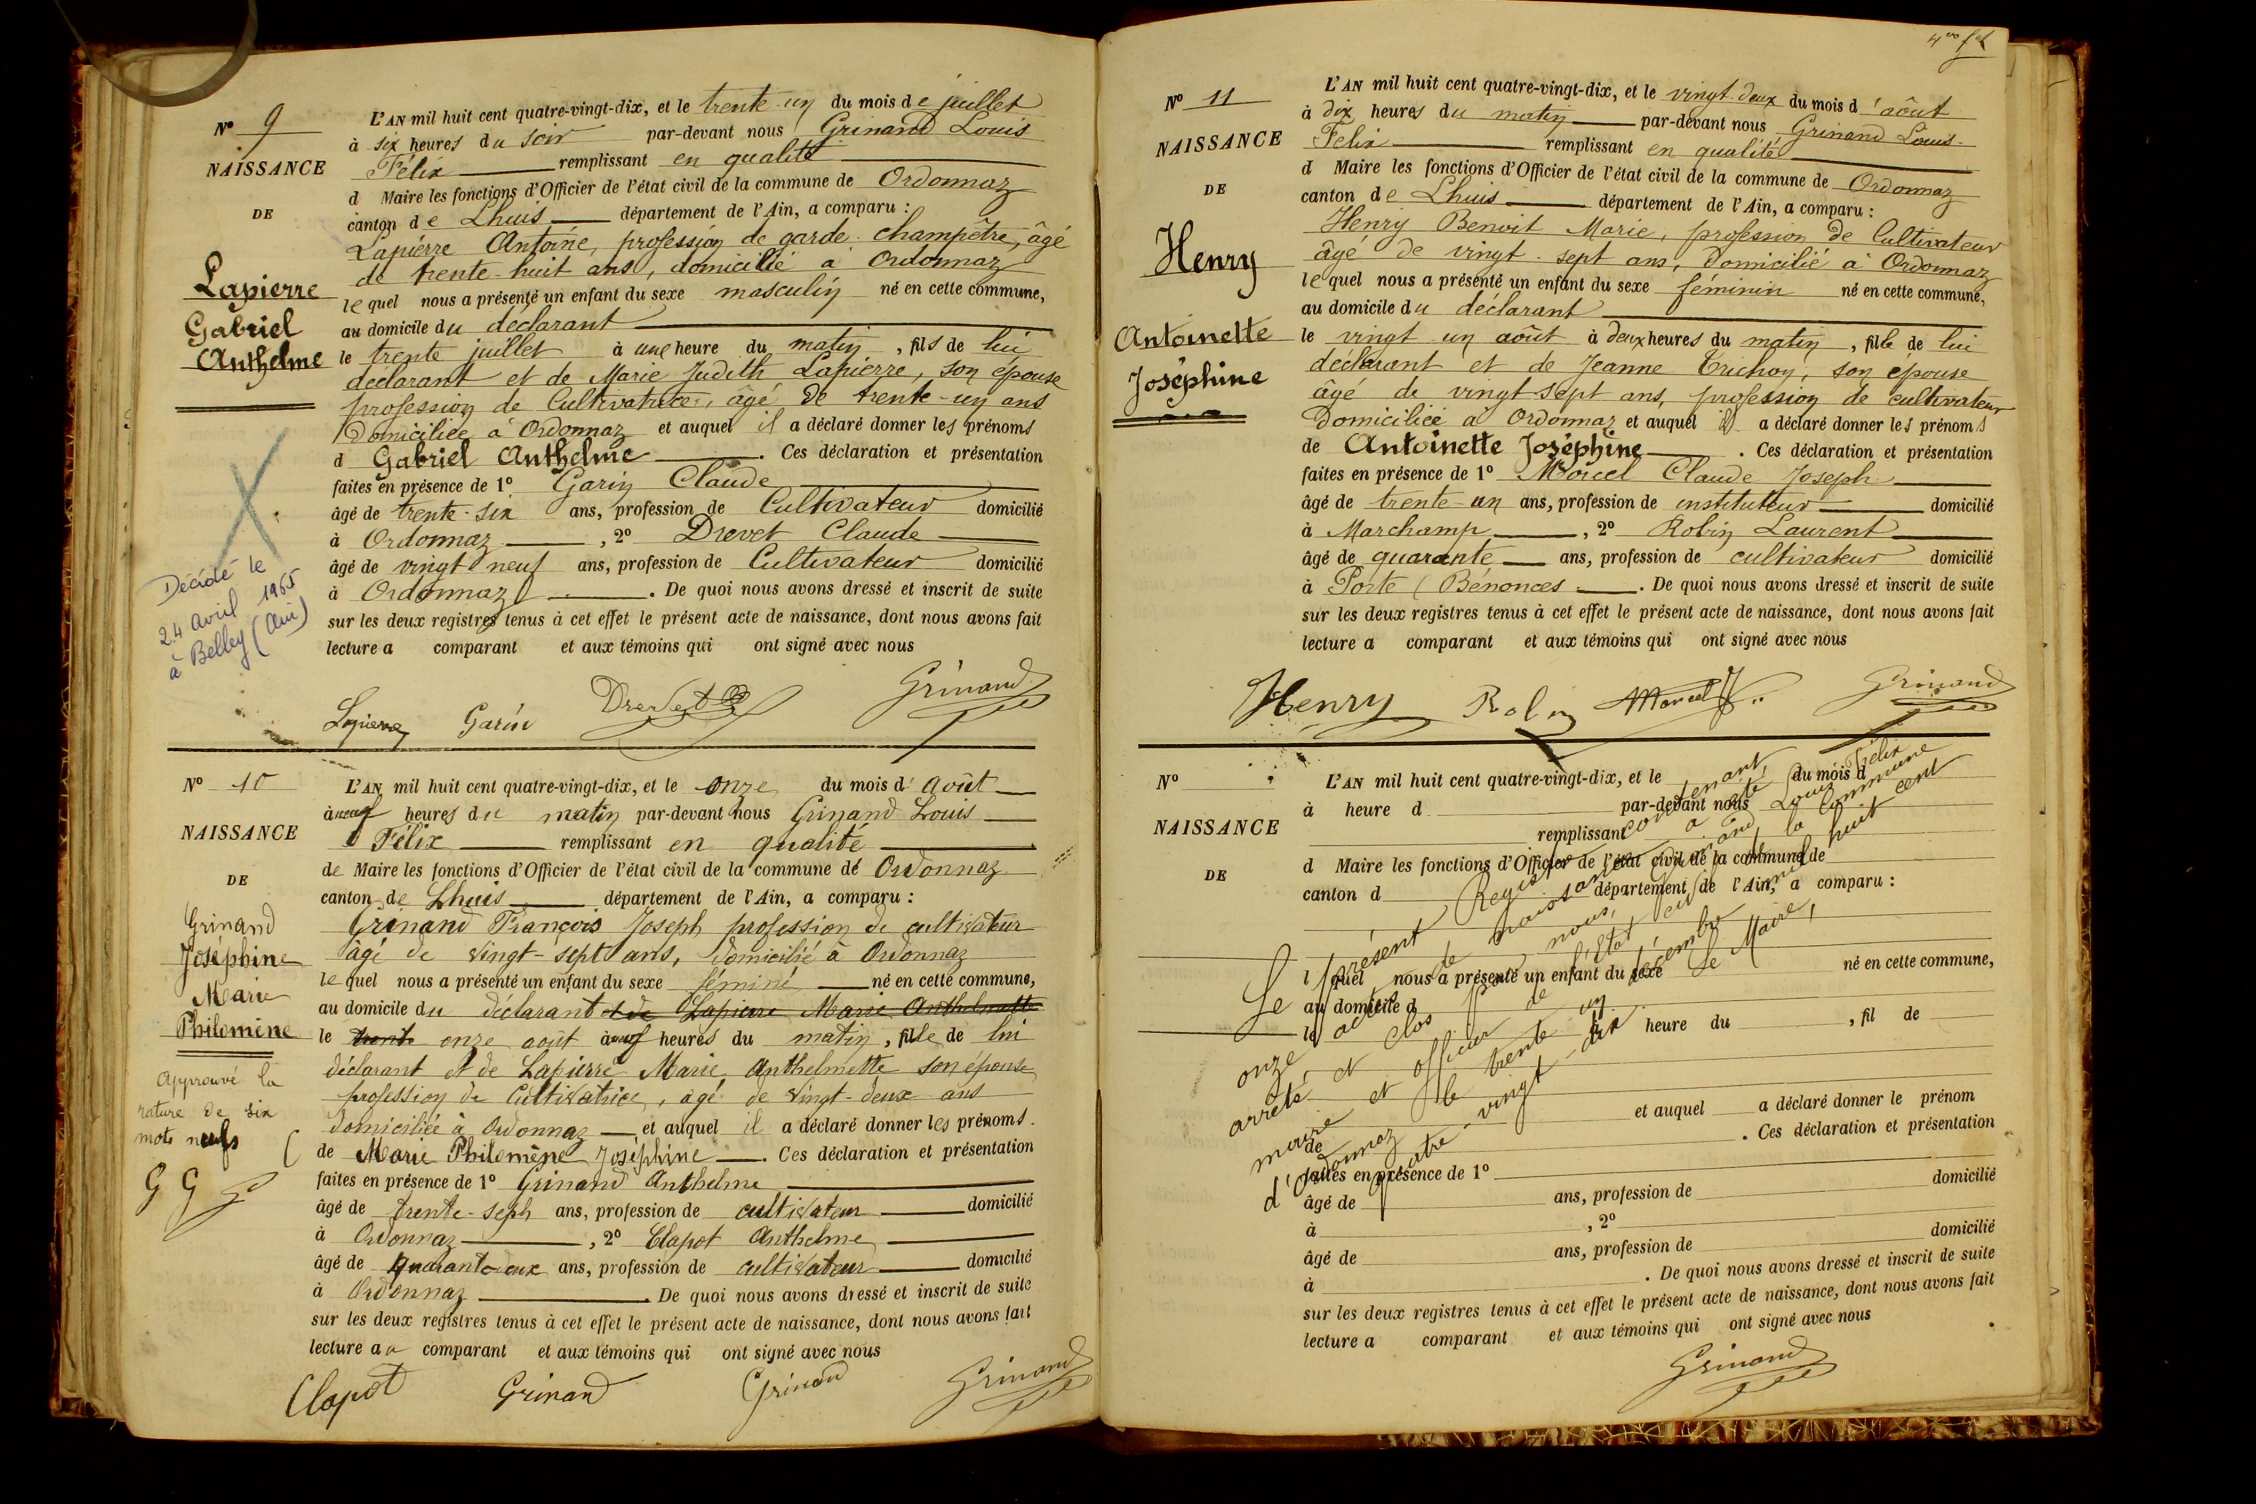 Nº 9
NAISSANCE
DE
Lapierre
Gabriel
Anthelme
Décédé le
24 avril 1965
à Belley (Ain)
L'AN mil huit cent quatre-vingt-dix, et le trente-un du mois de juillet
à six heures du soir par-devant nous Grinand Louis
Félix remplissant en qualité
d Maire les fonctions d'Officier de l'état civil de la commune de Ordonnaz
canton de Lhuis département de l'Ain, a comparu :
Lapierre Antoine, profession de garde-champêtre, âgé
de trente-huit ans, domicilié à Ordonnaz
lequel nous a présenté un enfant du sexe masculin né en cette commune,
au domicile du déclarant
le trente juillet à une heure du matin, fils de lui
déclarant et de Marie Judith Lapierre, son épouse
profession de Cultivatrice, âgé de trente-un ans
Domiciliée à Ordonnaz et auquel il a déclaré donner les prénoms
d Gabriel Anthelme . Ces déclaration et présentation
faites en présence de 1º Garin Claude
âgé de trente-six ans, profession de Cultivateur domicilié
à Ordonnaz , 2º Drevet Claude
âgé de vingt neuf ans, profession de Cultivateur domicilié
à Ordonnaz . De quoi nous avons dressé et inscrit de suite
sur les deux registres tenus à cet effet le présent acte de naissance, dont nous avons fait
lecture a comparant et aux témoins qui ont signé avec nous
Lapierre Garin Drevet Grinand
Nº 10
NAISSANCE
DE
Grinand
Joséphine
Marie
Philomène
Approuvé la
rature de six
mots nuls
G G G
L'AN mil huit cent quatre-vingt-dix, et le onze du mois d'Août
à neuf heures du matin par-devant nous Grinand Louis
Félix remplissant en qualité
de Maire les fonctions d'Officier de l'état civil de la commune de Ordonnaz
canton de Lhuis département de l'Ain, a comparu :
Grinand François Joseph profession de cultivateur
âgé de vingt-sept ans, domicilié à Ordonnaz
lequel nous a présenté un enfant du sexe féminé né en cette commune,
au domicile du déclarant et de Lapierre Marie Anthelmette
le trente onze août à neuf heures du matin, fille de lui
déclarant et de Lapierre Marie Anthelmette son épouse
profession de Cultivatrice, âgé de vingt-deux ans
domiciliée à Ordonnaz et auquel il a déclaré donner les prénoms.
de Marie Philomène Joséphine . Ces déclaration et présentation
faites en présence de 1º Grinand Anthelme
âgé de trente-seph ans, profession de cultivateur domicilié
à Ordonnaz , 2º Clapot Anthelme
âgé de quarante-eux ans, profession de cultivateur domicilié
à Ordonnaz . De quoi nous avons dressé et inscrit de suite
sur les deux registres tenus à cet effet le présent acte de naissance, dont nous avons fait
lecture a comparant et aux témoins qui ont signé avec nous
Clapot Grinand Grinand Grinand
Nº 11
NAISSANCE
DE
Henry
Antoinette
Joséphine
L'AN mil huit cent quatre-vingt-dix, et le vingt-deux du mois d'août
à dix heures du matin par-devant nous Grinand Louis
Felix remplissant en qualité
d Maire les fonctions d'Officier de l'état civil de la commune de Ordonnaz
canton de Lhuis département de l'Ain, a comparu :
Henry Benoit Marie, profession de Cultivateur
âgé de vingt-sept ans, Domicilié à Ordonnaz
lequel nous a présenté un enfant du sexe féminin né en cette commune,
au domicile du déclarant
le vingt un août à deux heures du matin, fille de lui
déclarant et de Jeanne Trichon, son épouse
âgé de vingt sept ans, profession de cultivateur
Domiciliée à Ordonnaz et auquel il a déclaré donner les prénoms
de Antoinette Joséphine . Ces déclaration et présentation
faites en présence de 1º Morcel Claude Joseph
âgé de trente-un ans, profession de instituteur domicilié
à Marchamp , 2º Robin Laurent
âgé de quarante ans, profession de cultivateur domicilié
à Porte (Bénonces . De quoi nous avons dressé et inscrit de suite
sur les deux registres tenus à cet effet le présent acte de naissance, dont nous avons fait
lecture a comparant et aux témoins qui ont signé avec nous
Henry Robin Morcel Grinand
Nº
NAISSANCE
DE
L'AN mil huit cent quatre-vingt-dix, et le du mois d
à heure d par-devant nous
remplissant
d Maire les fonctions d'Officier de l'état civil de la commune de
canton d département de l'Ain, a comparu :
l quel nous a présenté un enfant du sexe né en cette commune,
au domicile d
le heure du , fil de
et auquel a déclaré donner le prénom
de . Ces déclaration et présentation
faites en présence de 1º domicilié
âgé de ans, profession de
à , 2º domicilié
âgé de ans, profession de
à . De quoi nous avons dressé et inscrit de suite
sur les deux registres tenus à cet effet le présent acte de naissance, dont nous avons fait
lecture a comparant et aux témoins qui ont signé avec nous
Le présent Registre contenant
onze actes de naissance a été
arrêté et clos par nous, Grinand Louis Félix
maire et officier de l'Etat civil de la Commune
d'Ordonnaz le trente un décembre mil huit cent
quatre-vingt-dix. Le Maire,
Grinand